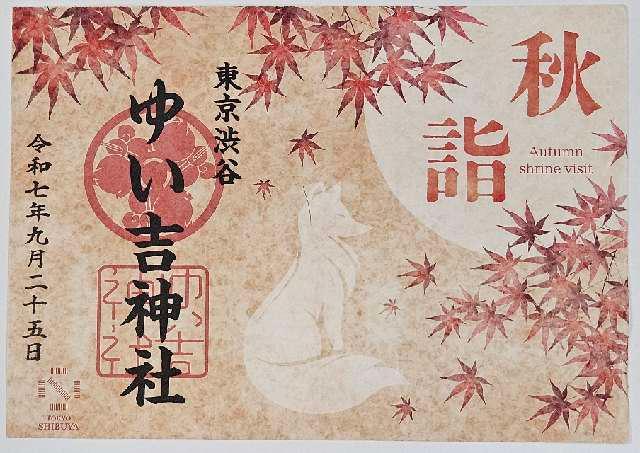 秋詣
Autumn
shrine visit
東京渋谷
ゆい吉神社
令和七年九月二十五日
TOKYO
SHIBUYA